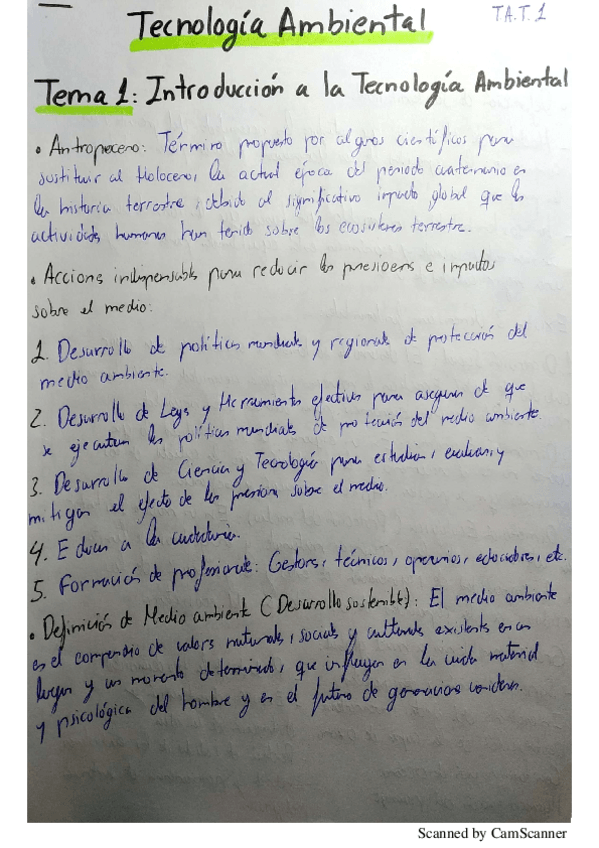 Tecnología Ambiental
TA.T.1
Tema 1: Introducción a la Tecnología Ambiental
• Antropoceno: Término propuesto por algunos científicos para
sustituir al Holoceno, la actual época del periodo cuaternario en
la historia terrestre, debido al significativo impacto global que las
actividades humanas han tenido sobre los ecosistemas terrestre.
• Acciones indispensables para reducir las presiones e impactos
sobre el medio:
1. Desarrollo de políticas mundiales y regionales de protección del
medio ambiente.
2. Desarrollo de Leyes y Herramientas efectivas para asegurar de que
se ejecutan las políticas mundiales de protección del medio ambiente.
3. Desarrollo de Ciencia y Tecnología para estudiar, evaluar y
mitigar el efecto de las presiones sobre el medio.
4. Educar a la ciudadanía.
5. Formación de profesionales: Gestores, técnicos, operarios, educadores, etc.
• Definición de Medio ambiente (Desarrollo sostenible): El medio ambiente
es el compendio de valores naturales, sociales y culturales existentes en un
lugar y un momento determinado, que influyen en la vida material
y psicológica del hombre y en el futuro de generaciones venideras.
Scanned by CamScanner